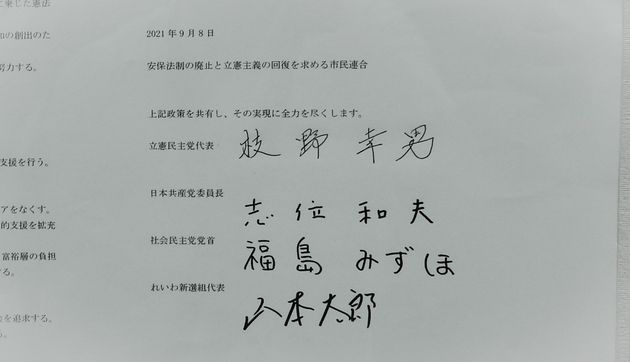 に乗じた憲法
mの創出のた
努力する。
支援を行う。
アをなくす。
的支援を拡充
富裕層の負担
する。
を追求する。
る。
2021年9月8日
安保法制の廃止と立憲主義の回復を求める市民連合
上記政策を共有し、その実現に全力を尽くします。
立憲民主党代表 枝野幸男
日本共産党委員長
志位和夫
社会民主党党首 福島みずほ
れいわ新選組代表
山本太郎